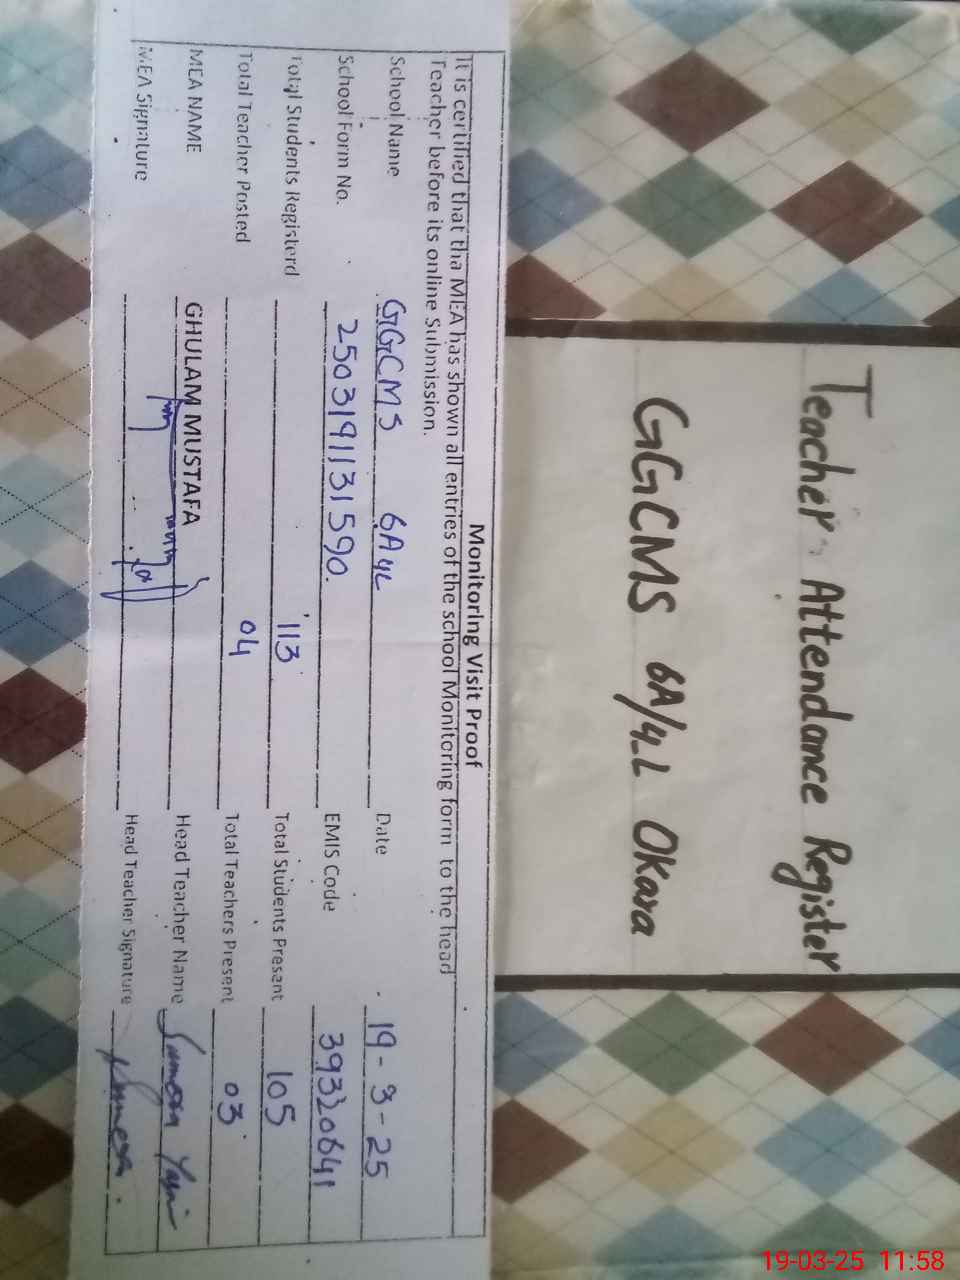 Teacher Attendance Register
GGCMS 6A/4-L Okara
Monitoring Visit Proof
It is certified that tha MEA has shown all entries of the school Monitoring form to the head
Teacher before its online Submission.
School Name GGCMS 6A4L Date 19-3-25
School Form No. 2503191131590. EMIS Code 39320641
Total Students Registerd 113 Total Students Present 105
Total Teacher Posted 04 Total Teachers Present 03
MEA NAME GHULAM MUSTAFA Head Teacher Name
MEA Signature Head Teacher Signature
19-03-25 11:58